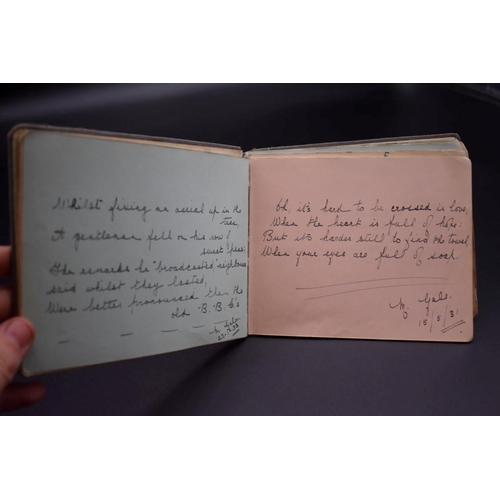 Whilst fixing an aerial up in the
tree,
A gentleman fell on his row of
sweet peas;
The remarks he "broadcasted" neighbours
said whilst they lasted,
Were better pronounced than the
old B.B.C's
Oh, it's hard to be crossed in love,
When the heart is full of hope:
But it's harder still to find the towel,
When your eyes are full of soap.
M. Gale.
15/5/31